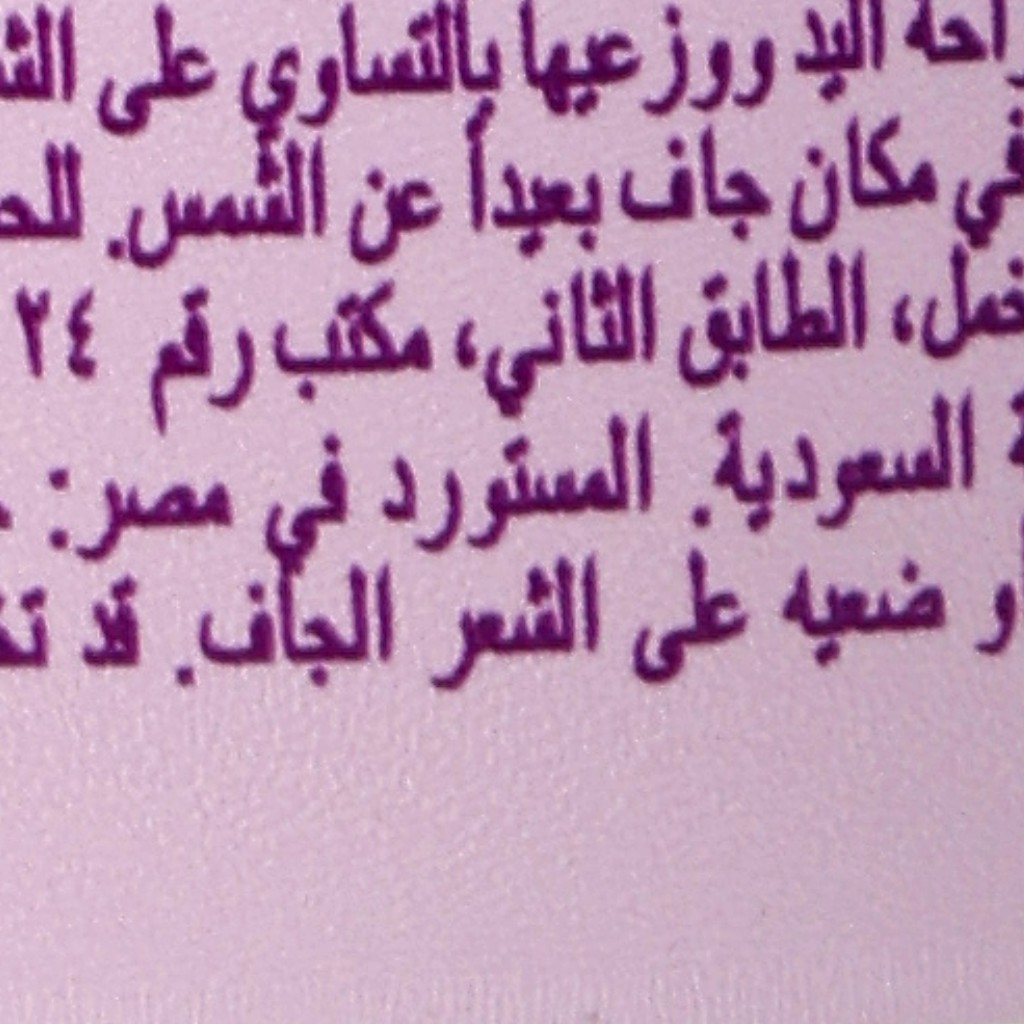 اليد ووزعيها بالتساوي على
في مكان جاف بعيداً عن الشمس.
الطابق الثاني، مكتب رقم ٢٤
السعودية. المستورد في مصر:
و ضعيه على الشعر الجاف. قد